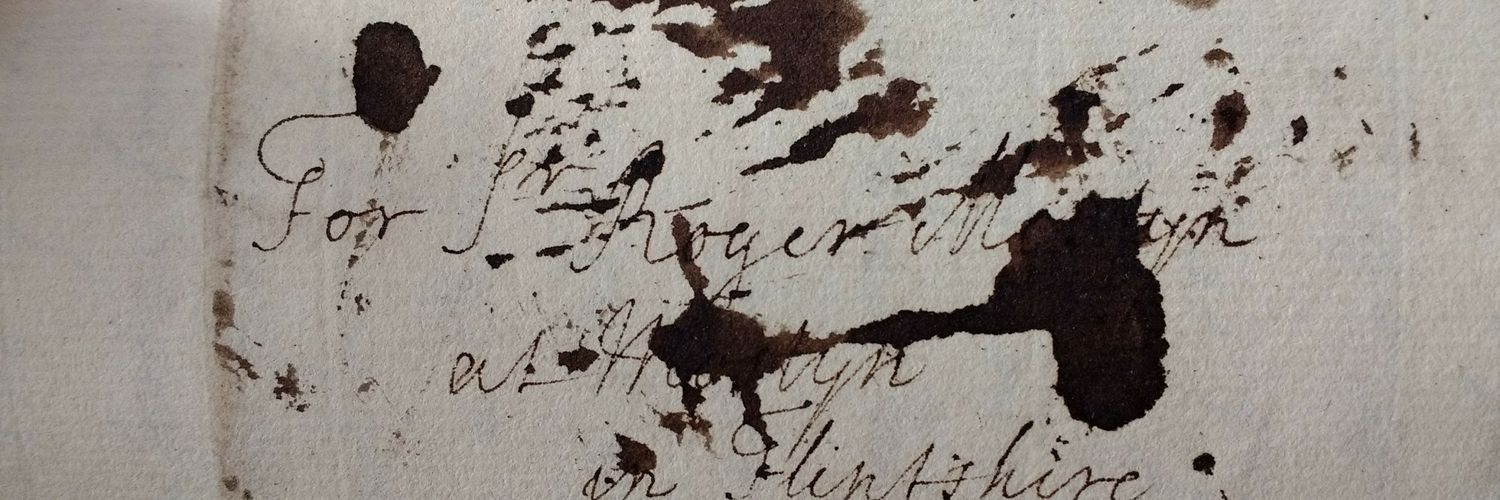 For Sr Roger Mostyn
at Mostyn
in Flintshire